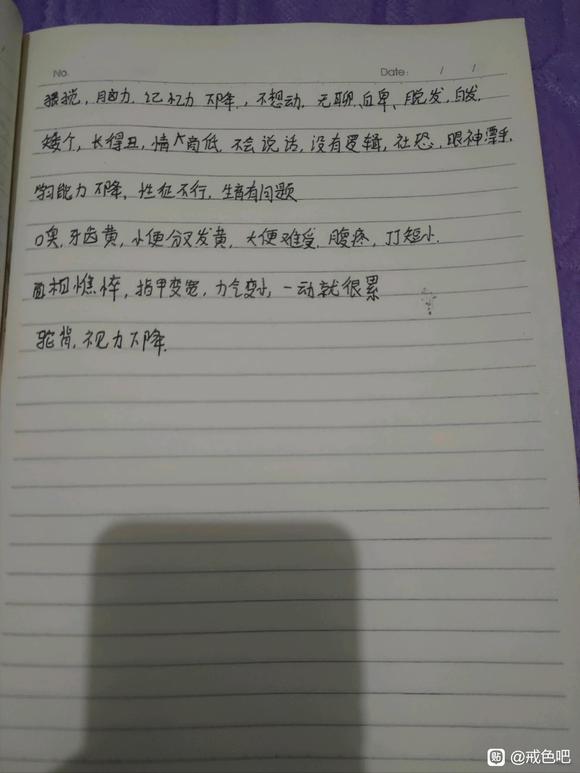 No.
Date: / /
猥琐，脑力，记忆力下降，不想动，无聊，自卑，脱发，白发，
矮个，长得丑，情商低，不会说话，没有逻辑，社恐，眼神漂乎，
学习能力下降，性征不行，生育有问题
口臭，牙齿黄，小便分叉发黄，大便难受，腹疼，丁短小，
面相憔悴，指甲变宽，力气变小，一动就很累
驼背，视力下降，
贴 @戒色吧